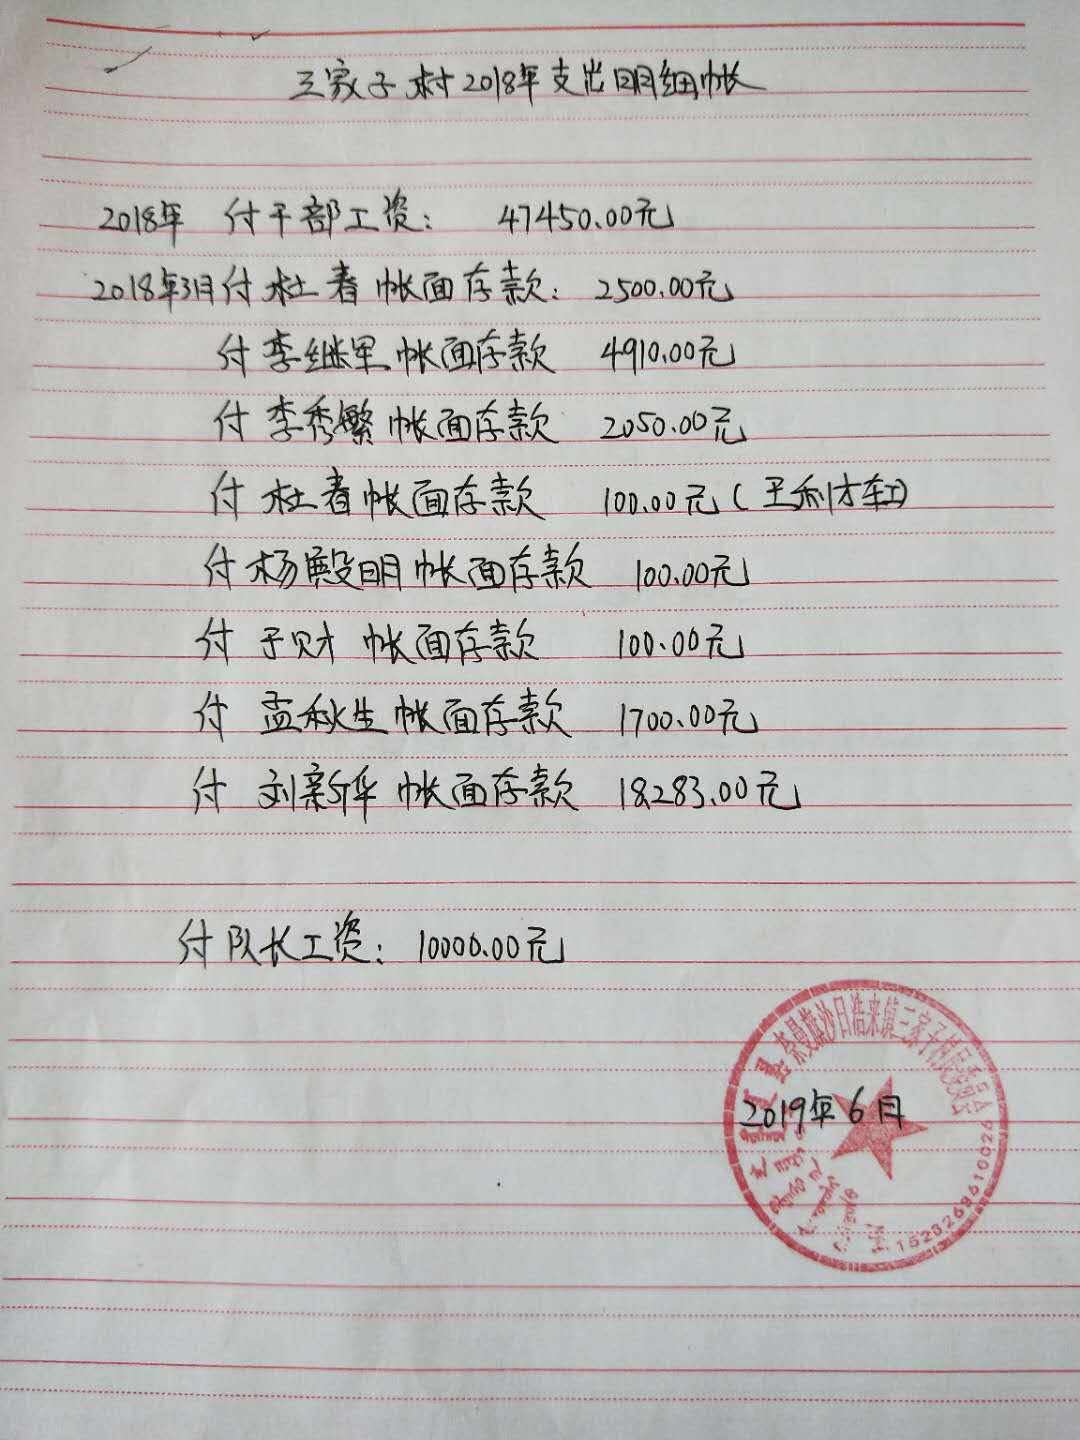 三家子村2018年支出明细帐
2018年 付干部工资： 47450.00元
2018年3月付杜春帐面存款： 2500.00元
付李继军帐面存款 4910.00元
付李秀繁帐面存款 2050.00元
付杜春帐面存款 100.00元（王利才车工）
付杨殿明帐面存款 100.00元
付于财帐面存款 100.00元
付孟秋生帐面存款 1700.00元
付刘新华帐面存款 18283.00元
付队长工资： 10000.00元
奈曼旗沙日浩来镇三家子村民委员会
2019年6月